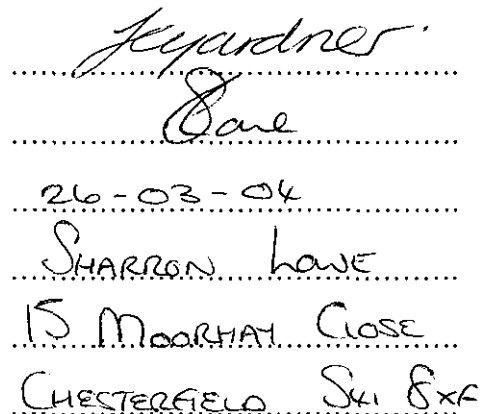 26-03-04
SHARRON LOWE
15 MOORHAY CLOSE
CHESTERFIELD S41 8XF